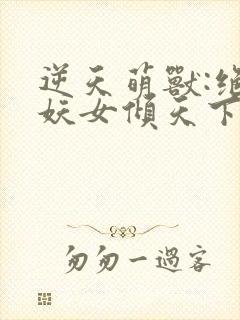 逆天萌獸:絕
妖女傾天下
匆匆一過客